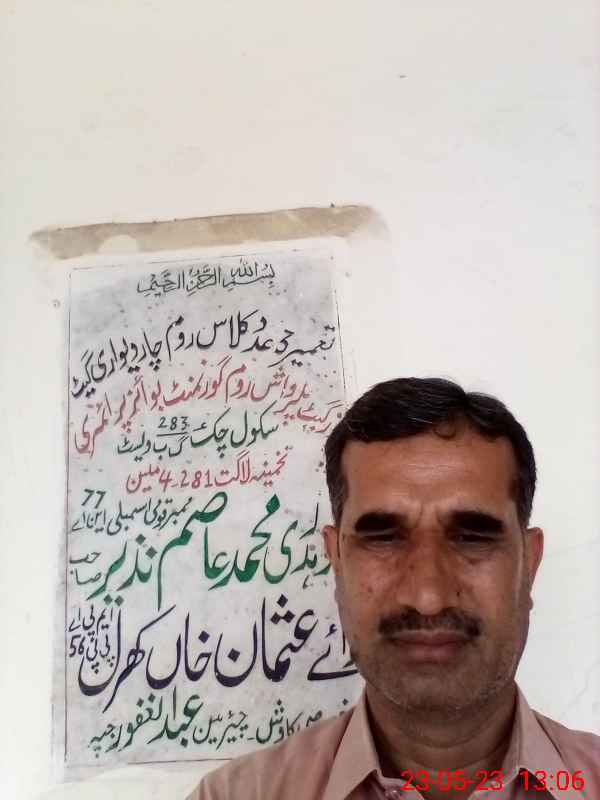 بسم الله الرحمن الرحيم
تعمیر 3 عدد کلاس روم چار دیواری گیٹ
واش روم گورنمنٹ بوائز پرائمری
سکول چک 283 گ ب ویسٹ
تخمینہ لاگت 4.281 ملین
ممبر قومی اسمبلی این اے 77
محمد عاصم نذیر صاحب
رائے عثمان خاں کھرل ایم پی اے پی پی 56
کاوش ۔ چیئرمین عبدالغفور جپہ
23-05-23 13:06